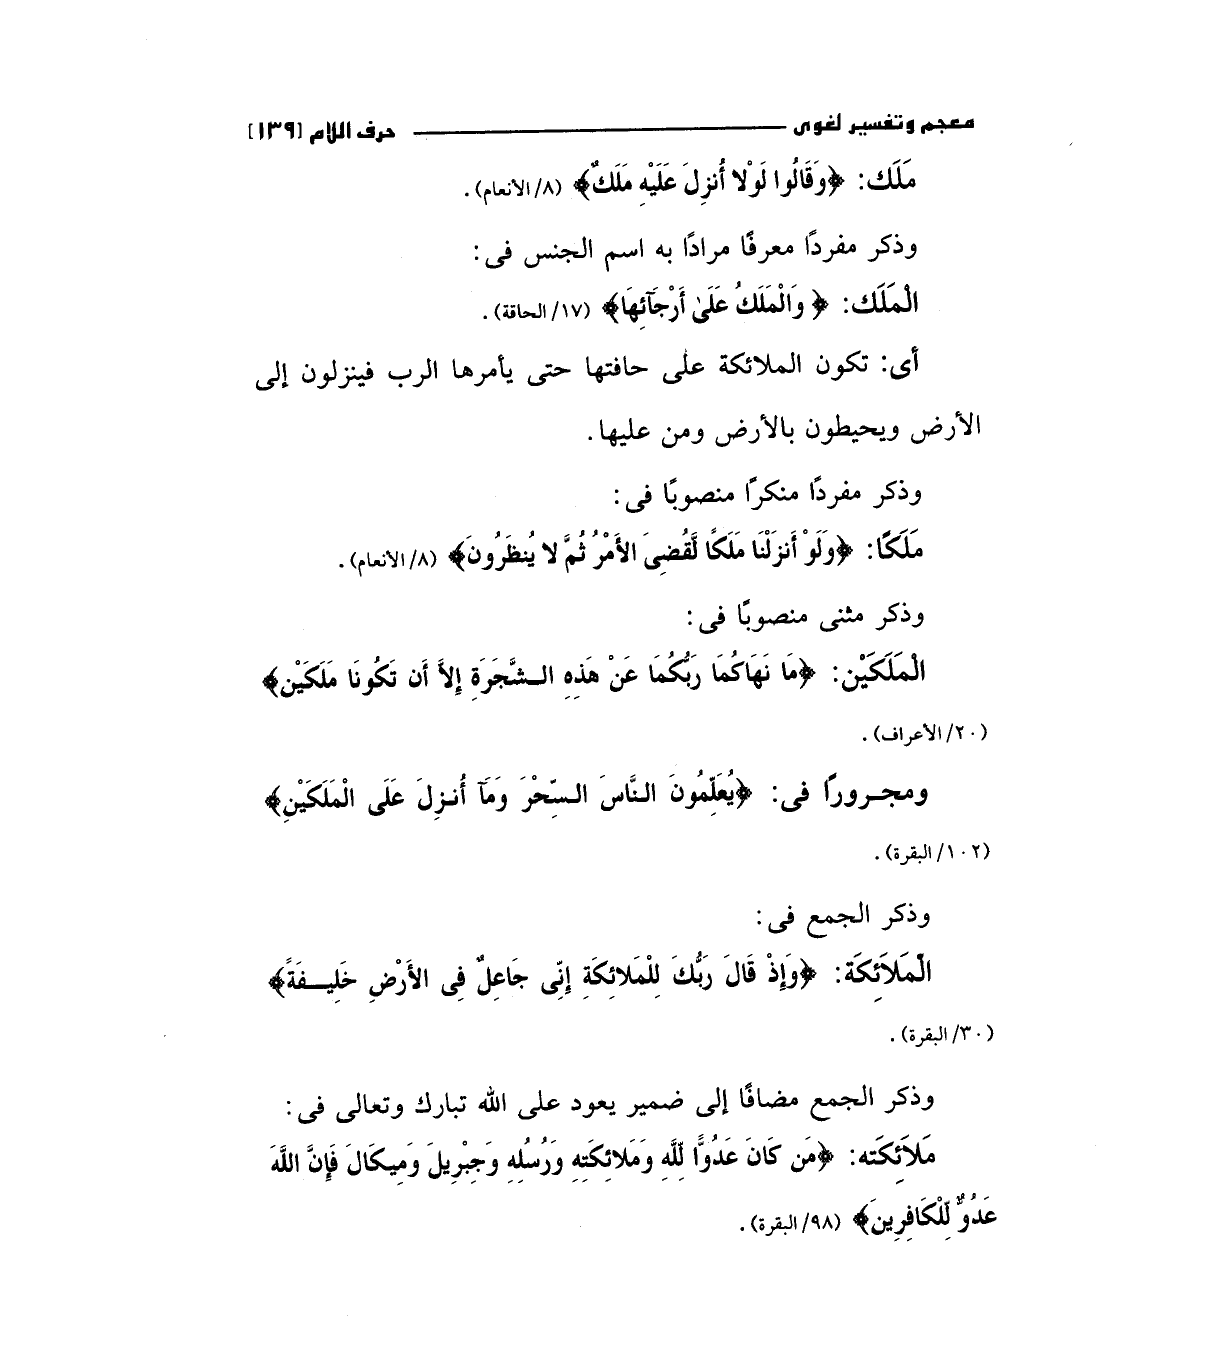 معجم وتفسير لغوى ــــــــــــ حرف اللام [١٣٩]
مَلَك: ﴿وَقَالُوا لَوْلا أُنزِلَ عَلَيْهِ مَلَكٌ﴾ (٨/ الأنعام).
وذكر مفردًا معرفًا مرادًا به اسم الجنس فى:
الْمَلَك: ﴿وَالْمَلَكُ عَلَىٰ أَرْجَآئِهَا﴾ (١٧/ الحاقة).
أى: تكون الملائكة على حافتها حتى يأمرها الرب فينزلون إلى
الأرض ويحيطون بالأرض ومن عليها.
وذكر مفردًا منكرًا منصوبًا فى:
مَلَكًا: ﴿وَلَوْ أَنزَلْنَا مَلَكًا لَّقُضِىَ الأَمْرُ ثُمَّ لا يُنظَرُونَ﴾ (٨/ الأنعام).
وذكر مثنى منصوبًا فى:
الْمَلَكَيْن: ﴿مَا نَهَاكُمَا رَبُّكُمَا عَنْ هَذِهِ الشَّجَرَةِ إِلاَّ أَن تَكُونَا مَلَكَيْنِ﴾
(٢٠/ الأعراف).
ومجرورًا فى: ﴿يُعَلِّمُونَ النَّاسَ السِّحْرَ وَمَآ أُنزِلَ عَلَى الْمَلَكَيْنِ﴾
(١٠٢/ البقرة).
وذكر الجمع فى:
الْمَلاَئِكَة: ﴿وَإِذْ قَالَ رَبُّكَ لِلْمَلائِكَةِ إِنِّى جَاعِلٌ فِى الأَرْضِ خَلِيفَةً﴾
(٣٠/ البقرة).
وذكر الجمع مضافًا إلى ضمير يعود على الله تبارك وتعالى فى:
مَلاَئِكَته: ﴿مَن كَانَ عَدُوًّا لِّلَّهِ وَمَلائِكَتِهِ وَرُسُلِهِ وَجِبْرِيلَ وَمِيكَالَ فَإِنَّ اللَّهَ
عَدُوٌّ لِّلْكَافِرِينَ﴾ (٩٨/ البقرة).